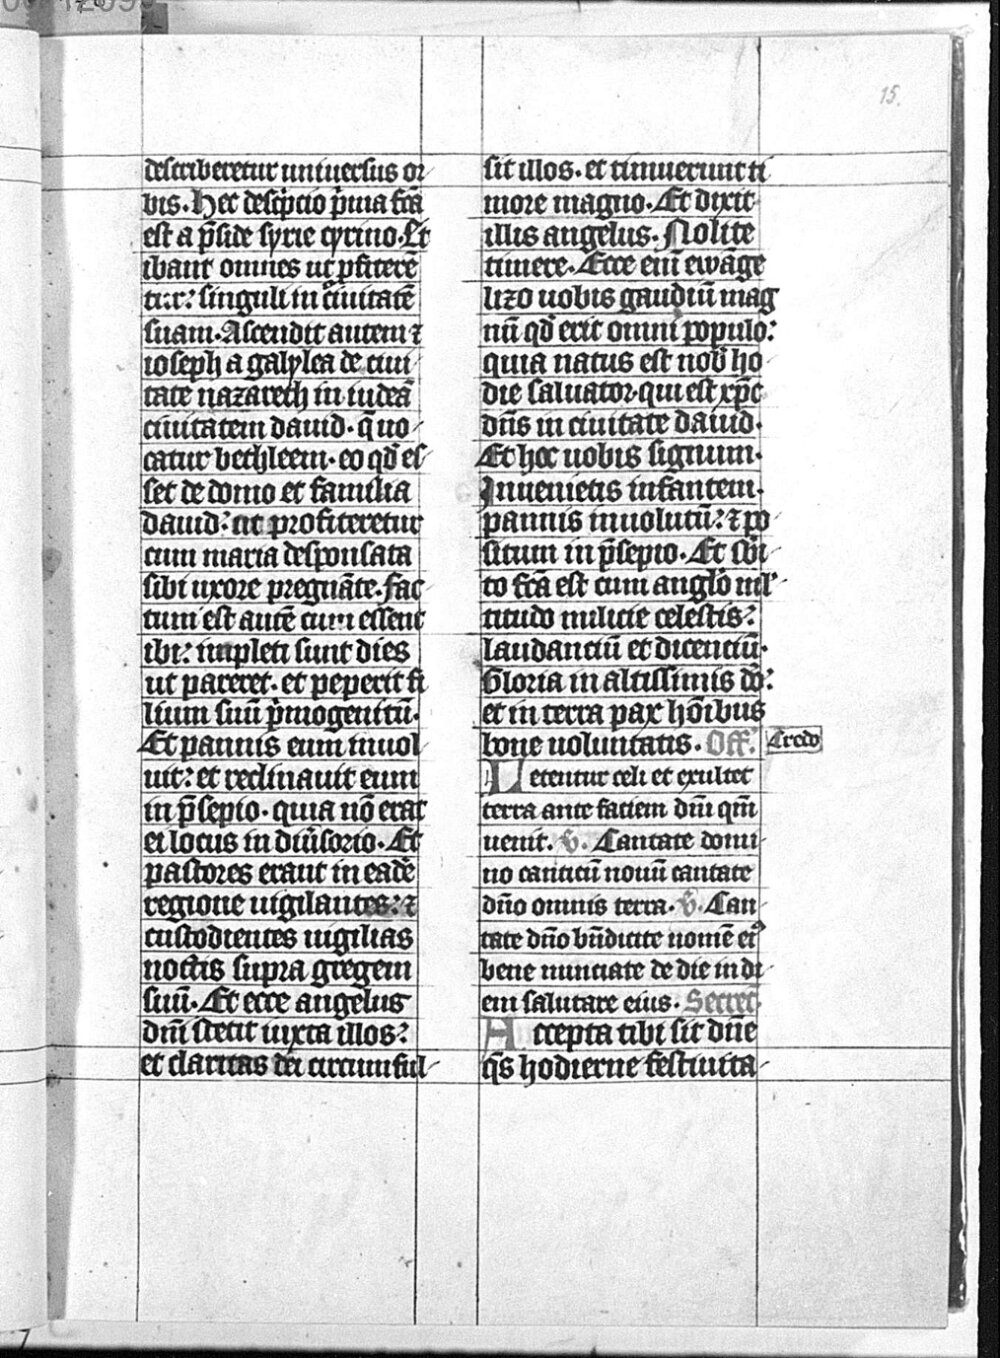 15.
describeretur uniuersus or
bis. Hec desc͛pcio p͛ma fc̄a
est a p͛side syrie cyrino. Et
ibant omnes ut ꝓfiterē
tur: singuli in ciuitatē
suam. Ascendit autem ⁊
ioseph a galylea de ciui
tate nazareth in iudeā
ciuitatem dauid. q̄ uo
catur bethleem. eo qd̄ es
set de domo et familia
dauid: ut profiteretur
cum maria desponsata
sibi uxore pregnāte. fac
tum est autē cum essent
ibi: impleti sunt dies
ut pareret. et peperit fi
lium suū p͛mogenitū.
Et pannis eum inuol
uit: et reclinauit eum
in p͛sepio. quia nō erat
ei locus in diu͛sorio. Et
pastores erant in eadē
regione uigilantes: ⁊
custodientes uigilias
noctis supra gregem
suū. Et ecce angelus
dn̄i stetit iuxta illos:
et claritas dei circumful
sit illos. et timuerunt ti
more magno. Et dixit
illis angelus. Nolite
timere. Ecce eni̅ ewāge
lizo uobis gaudiū mag
nū qd̄ erit omni populo:
quia natus est nob̄ ho
die saluator qui est xp̄c
dn̄s in ciuitate dauid.
Et hoc uobis signum.
Inuenietis infantem.
pannis inuolutū: ⁊ po
situm in p͛sepio. Et sb̄i
to fc̄a est cum anglo ml̓
titudo milicie celestis:
laudanciū et dicenciū.
Gloria in altissimis dō:
et in terra pax hōibus
bone uoluntatis. Off. Credo
Letentur celi et exultet
terra ante faciem dn̄i qm̄
uenit. v̄. Cantate domi
no canticū nouū cantate
dn̄o omnis terra. v̄. Can
tate dn̄o bn̄dicite nomē eiꝰ
bene nunciate de die in di
em salutare eius. Secret.
Accepta tibi sit dn̄e
qs̄ hodierne festiuita